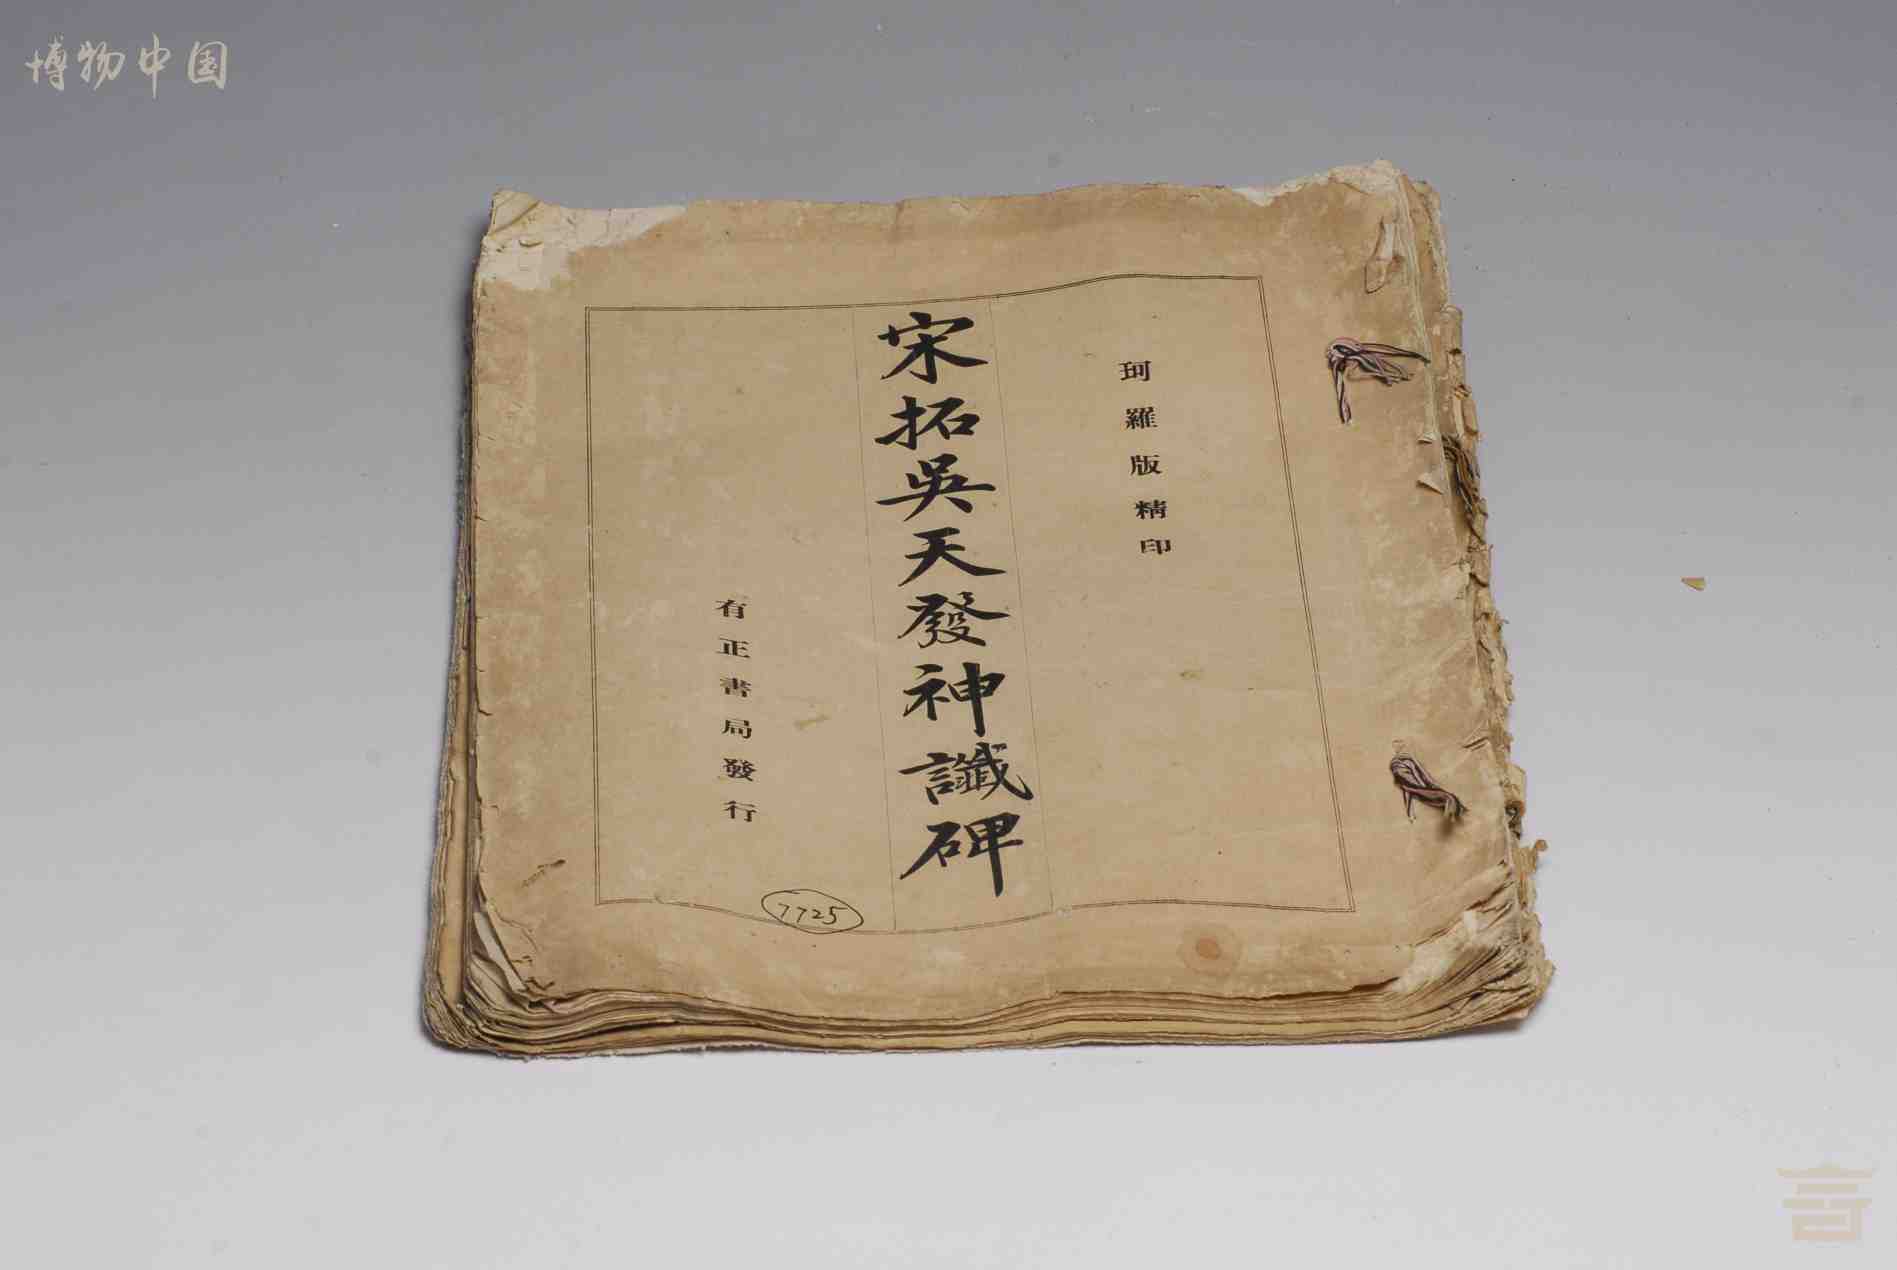 博物中国
珂羅版精印
宋拓吳天發神讖碑
有正書局發行
7725